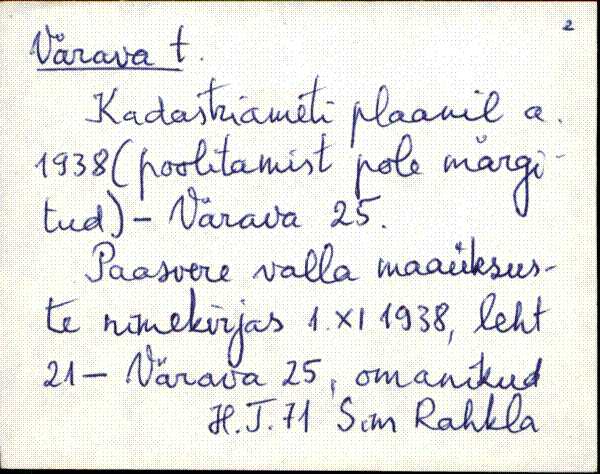 2
Värava t.
Kadastriameti plaanil a.
1938 (poolitamist pole märgi-
tud) – Värava 25.
Paasvere valla maaüksus-
te nimekirjas 1. XI 1938, leht
21 – Värava 25, omanikud
H. T. 71 Sim Rahkla